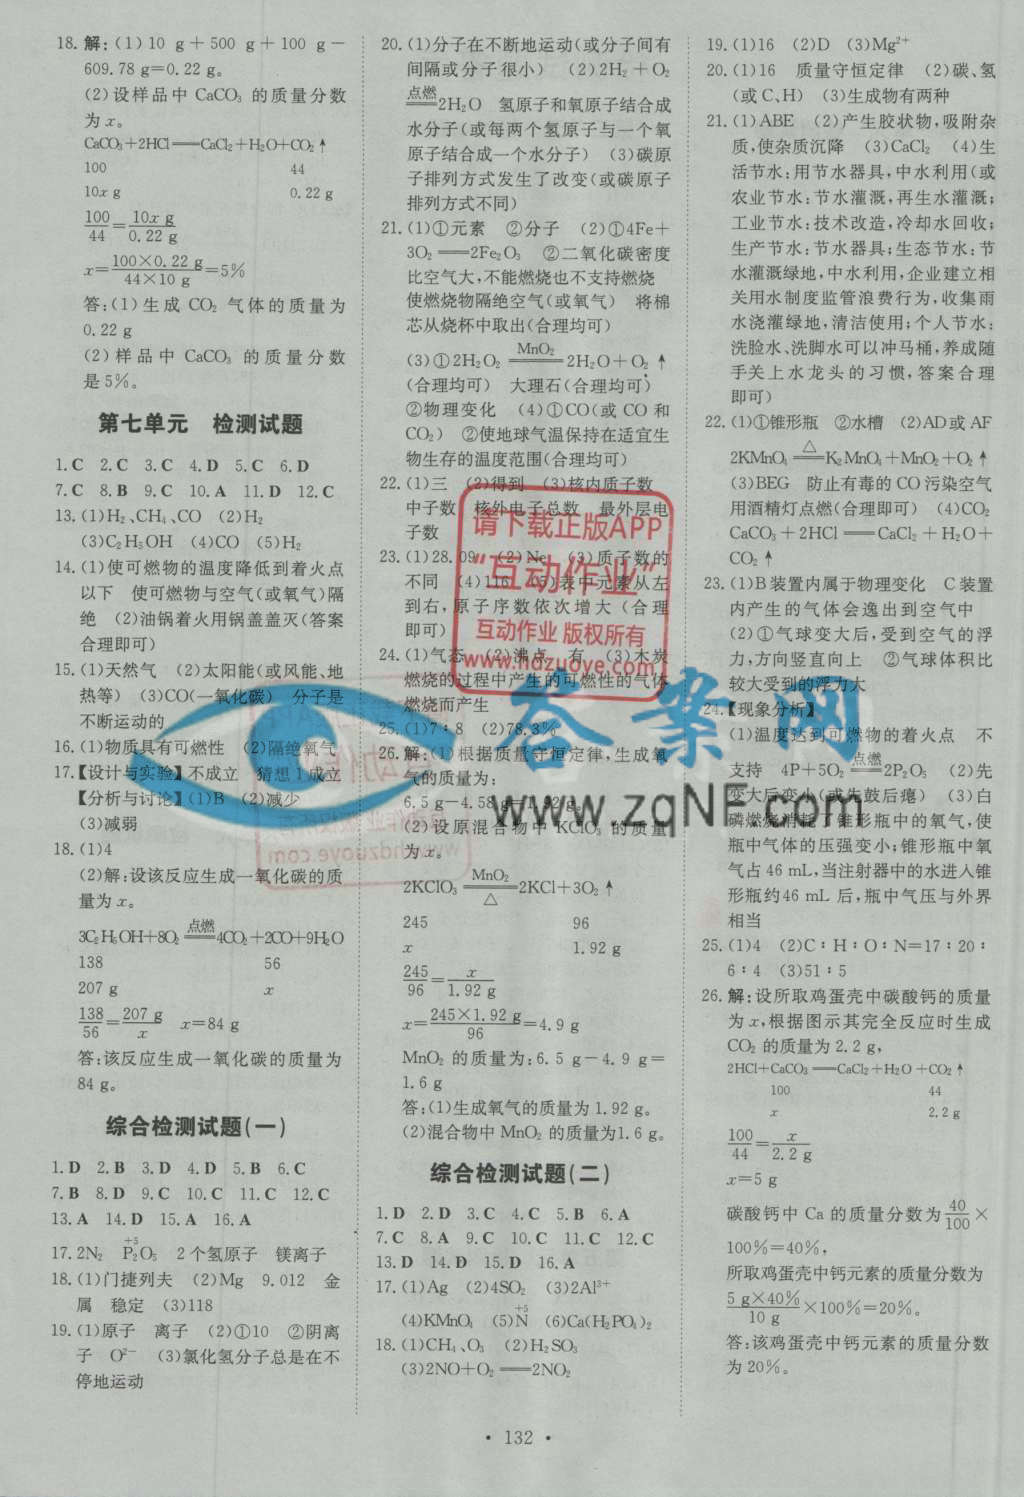 18. 解:(1)10 g+500 g+100 g-
609.78 g=0.22 g。
(2)设样品中 CaCO₃ 的质量分数
为 x。
CaCO₃+2HCl══CaCl₂+H₂O+CO₂↑
100 44
10x g 0.22 g
100/44=10x g/0.22 g
x=100×0.22 g/44×10 g=5%
答:(1)生成 CO₂ 气体的质量为
0.22 g。
(2)样品中 CaCO₃ 的质量分数
是5%。
第七单元 检测试题
1. C 2. C 3. C 4. D 5. C 6. D
7. C 8. B 9. C 10. A 11. D 12. C
13. (1)H₂、CH₄、CO (2)H₂
(3)C₂H₅OH (4)CO (5)H₂
14. (1)使可燃物的温度降低到着火点
以下 使可燃物与空气(或氧气)隔
绝 (2)油锅着火用锅盖盖灭(答案
合理即可)
15. (1)天然气 (2)太阳能(或风能、地
热等) (3)CO(一氧化碳) 分子是
不断运动的
16. (1)物质具有可燃性 (2)隔绝氧气
17.【设计与实验】不成立 猜想1成立
【分析与讨论】(1)B (2)减少
(3)减弱
18. (1)4
(2)解:设该反应生成一氧化碳的质
量为 x。
3C₂H₅OH+8O₂ 点燃══ 4CO₂+2CO+9H₂O
138 56
207 g x
138/56=207 g/x x=84 g
答:该反应生成一氧化碳的质量为
84 g。
综合检测试题(一)
1. D 2. B 3. D 4. D 5. B 6. C
7. B 8. D 9. C 10. C 11. C 12. C
13. A 14. D 15. A 16. A
17. 2N₂ P₂(+5)O₅ 2个氢原子 镁离子
18. (1)门捷列夫 (2)Mg 9.012 金
属 稳定 (3)118
19. (1)原子 离子 (2)①10 ②阴离
子 O²⁻ (3)氯化氢分子总是在不
停地运动
20. (1)分子在不断地运动(或分子间有
间隔或分子很小) (2)2H₂+O₂
点燃══2H₂O 氢原子和氧原子结合成
水分子(或每两个氢原子与一个氧
原子结合成一个水分子) (3)碳原
子排列方式发生了改变(或碳原子
排列方式不同)
21. (1)①元素 ②分子 (2)①4Fe+
3O₂══2Fe₂O₃ ②二氧化碳密度
比空气大,不能燃烧也不支持燃烧
使燃烧物隔绝空气(或氧气) 将棉
芯从烧杯中取出(合理均可)
(3)①2H₂O₂ MnO₂══ 2H₂O+O₂↑
(合理均可) 大理石(合理均可)
②物理变化 (4)①CO(或 CO 和
CO₂) ②使地球气温保持在适宜生
物生存的温度范围(合理均可)
22. (1)三 (2)得到 (3)核内质子数
中子数 核外电子总数 最外层电
子数
23. (1)28.09 (2)Ne (3)质子数的
不同 (4)116 (5)表中元素从左
到右,原子序数依次增大(合理
即可)
24. (1)气态 (2)沸点 有 (3)木炭
燃烧的过程中产生的可燃性的气体
燃烧而产生
25. (1)7∶8 (2)78.3%
26. 解:(1)根据质量守恒定律,生成氧
气的质量为:
6.5 g-4.58 g=1.92 g。
(2)设原混合物中 KClO₃ 的质量
为 x。
2KClO₃ MnO₂══△ 2KCl+3O₂↑
245 96
x 1.92 g
245/96=x/1.92 g
x=245×1.92 g/96=4.9 g
MnO₂ 的质量为:6.5 g-4.9 g=
1.6 g
答:(1)生成氧气的质量为1.92 g。
(2)混合物中 MnO₂ 的质量为1.6 g。
综合检测试题(二)
1. D 2. D 3. C 4. C 5. B 6. A
7. C 8. A 9. C 10. C 11. C 12. C
13. D 14. D 15. D 16. A
17. (1)Ag (2)4SO₂ (3)2Al³⁺
(4)KMnO₄ (5)N(+5) (6)Ca(H₂PO₄)₂
18. (1)CH₄、O₃ (2)H₂SO₃
(3)2NO+O₂══2NO₂
19. (1)16 (2)D (3)Mg²⁺
20. (1)16 质量守恒定律 (2)碳、氢
(或 C、H) (3)生成物有两种
21. (1)ABE (2)产生胶状物,吸附杂
质,使杂质沉降 (3)CaCl₂ (4)生
活节水:用节水器具,中水利用(或
农业节水:节水灌溉,再生水灌溉;
工业节水:技术改造,冷却水回收;
生产节水:节水器具;生态节水:节
水灌溉绿地,中水利用,企业建立相
关用水制度监管浪费行为,收集雨
水浇灌绿地,清洁使用;个人节水:
洗脸水、洗脚水可以冲马桶,养成随
手关上水龙头的习惯,答案合理
即可)
22. (1)①锥形瓶 ②水槽 (2)AD或AF
2KMnO₄ △══ K₂MnO₄+MnO₂+O₂↑
(3)BEG 防止有毒的 CO 污染空气
用酒精灯点燃(合理即可) (4)CO₂
CaCO₃+2HCl══CaCl₂+H₂O+
CO₂↑
23. (1)B装置内属于物理变化 C装置
内产生的气体会逸出到空气中
(2)①气球变大后,受到空气的浮
力,方向竖直向上 ②气球体积比
较大受到的浮力大
24.【现象分析】
(1)温度达到可燃物的着火点 不
支持 4P+5O₂ 点燃══ 2P₂O₅ (2)先
变大后变小(或先鼓后瘪) (3)白
磷燃烧消耗了锥形瓶中的氧气,使
瓶中气体的压强变小;锥形瓶中氧
气占46 mL,当注射器中的水进入锥
形瓶约46 mL 后,瓶中气压与外界
相当
25. (1)4 (2)C∶H∶O∶N=17∶20∶
6∶4 (3)51∶5
26. 解:设所取鸡蛋壳中碳酸钙的质量
为 x,根据图示其完全反应时生成
CO₂ 的质量为2.2 g,
2HCl+CaCO₃══CaCl₂+H₂O+CO₂↑
100 44
x 2.2 g
100/44=x/2.2 g
x=5 g
碳酸钙中 Ca 的质量分数为40/100×
100%=40%,
所取鸡蛋壳中钙元素的质量分数为
5 g×40%/10 g×100%=20%。
答:该鸡蛋壳中钙元素的质量分数
为20%。
请下载正版APP
“互动作业”
互动作业 版权所有
www.hdzuoye.com
答案网
www.zqNF.com
• 132 •